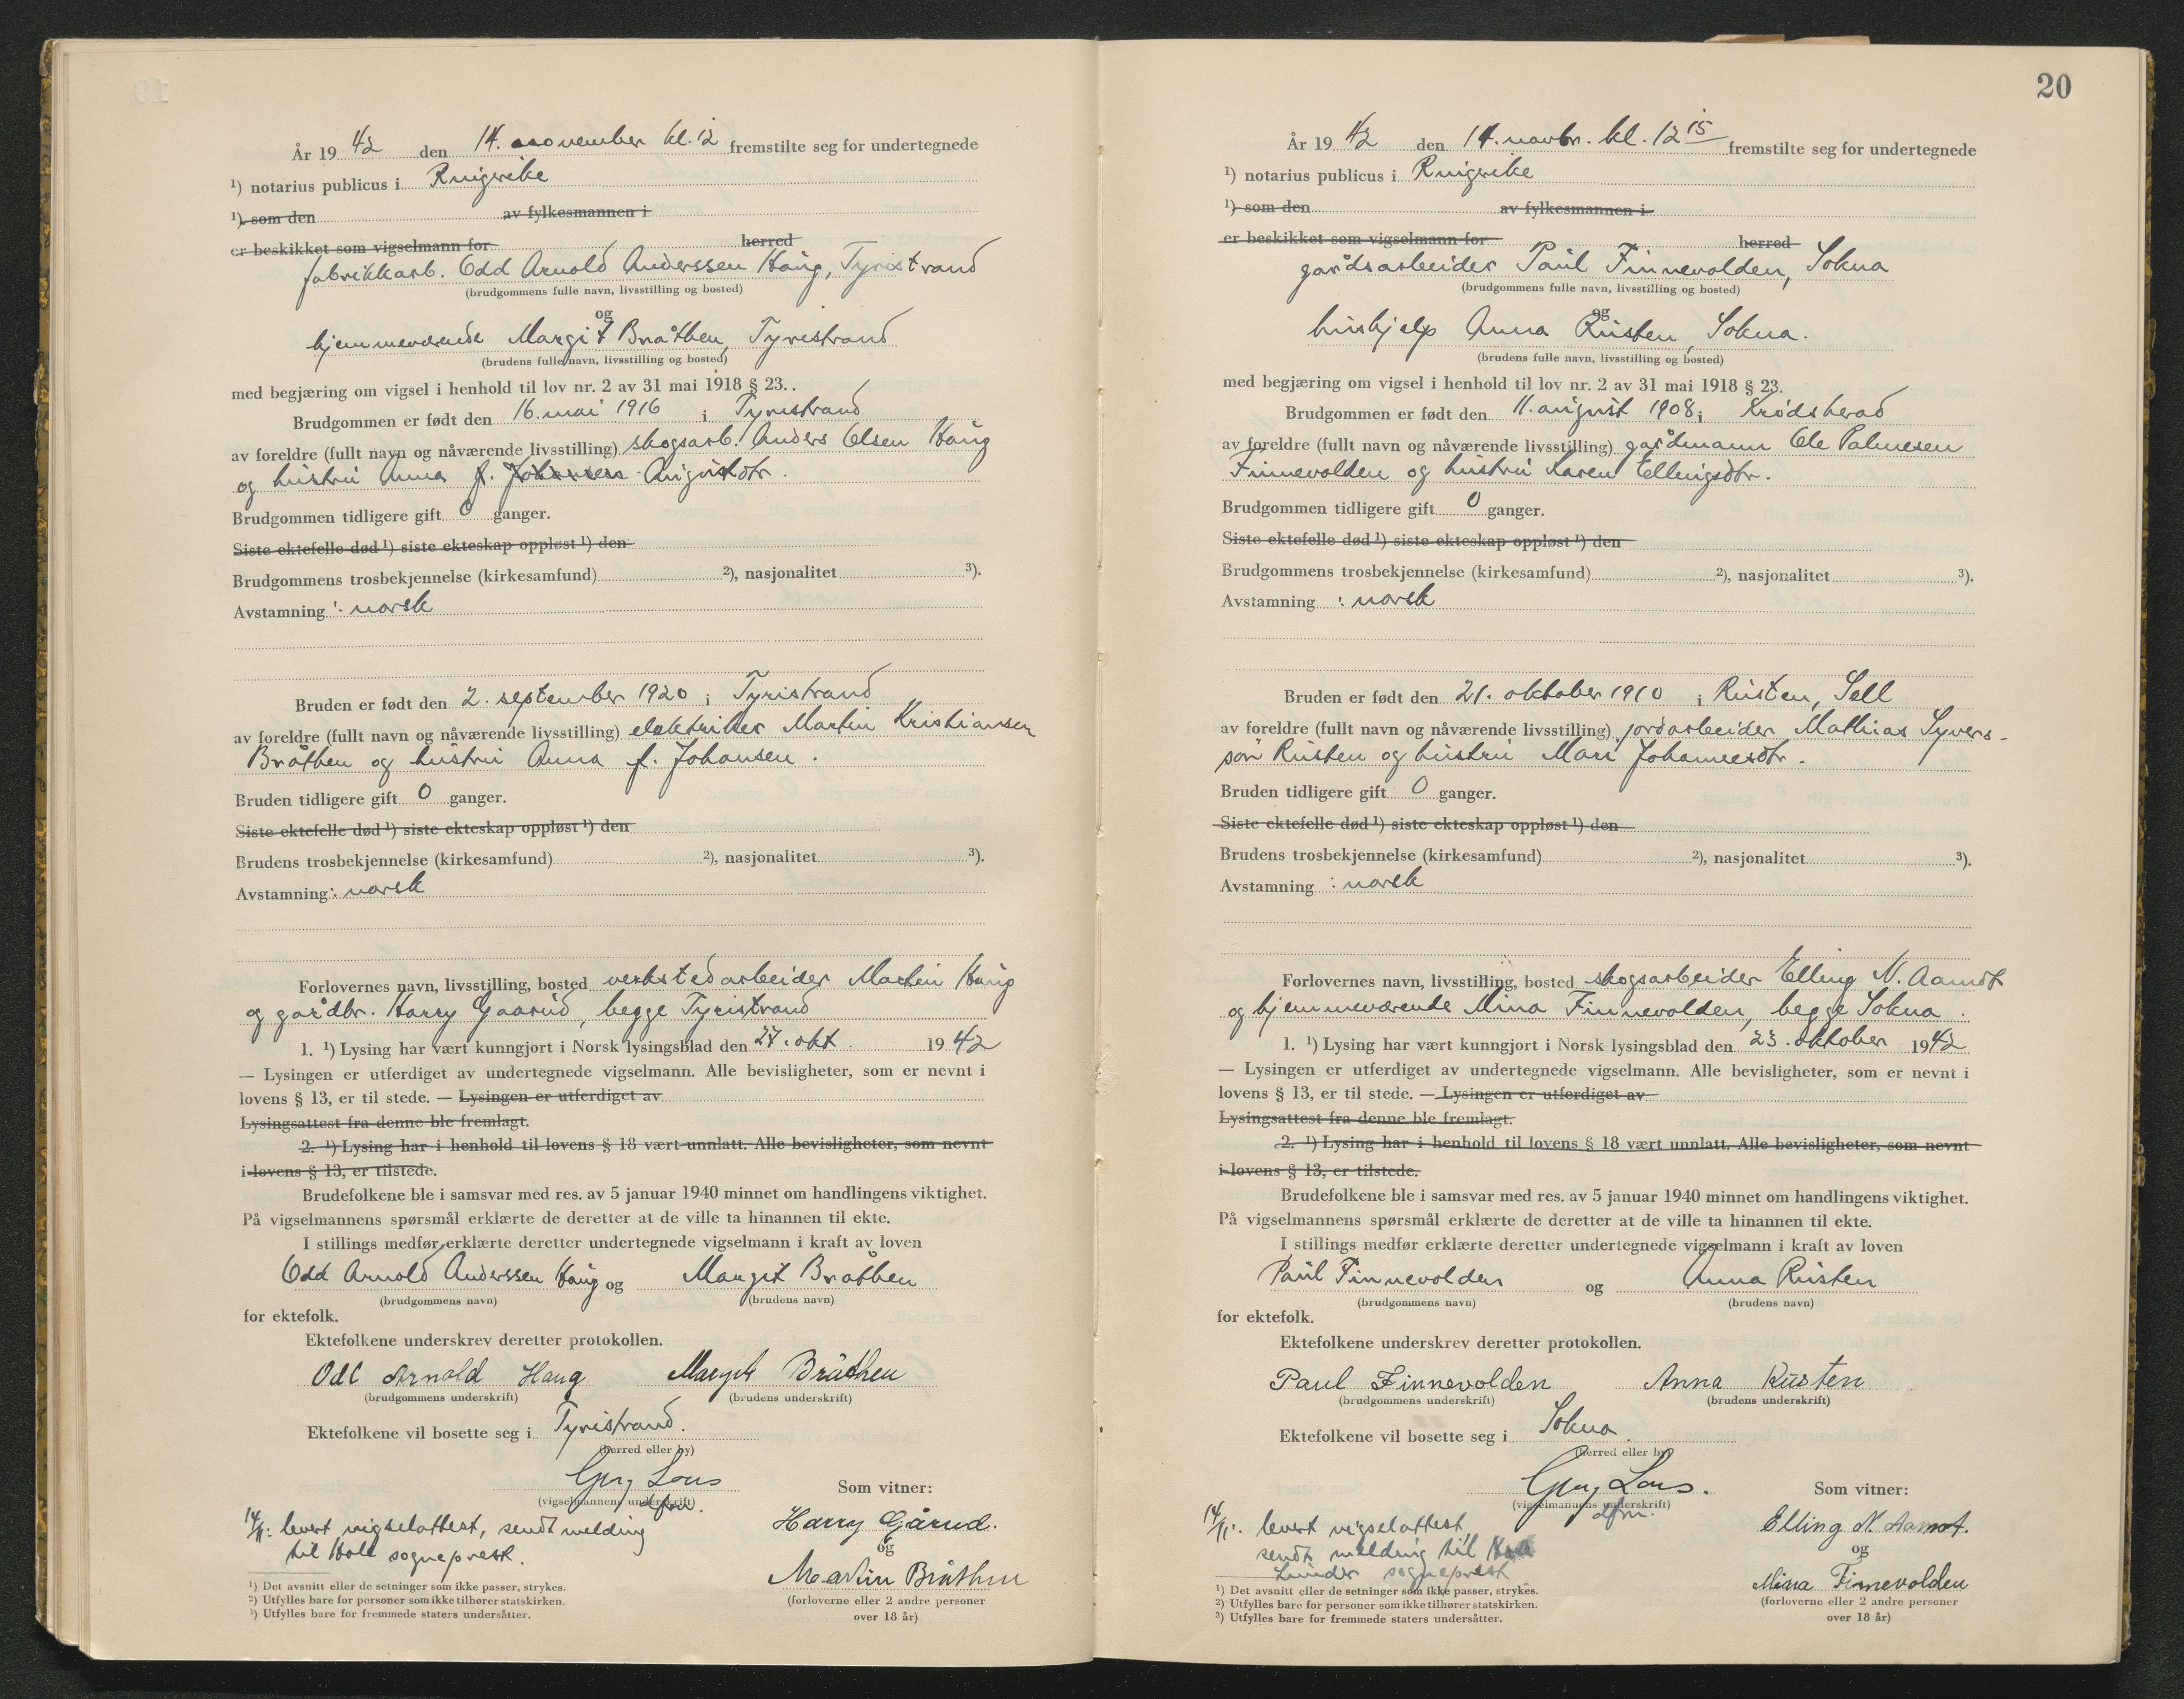 År 19 42 den 14. november kl. 12 fremstilte seg for undertegnede
¹) notarius publicus i Ringerike
¹) som den av fylkesmannen i
er beskikket som vigselmann for herred
fabrikkarb. Odd Arnold Anderssen Haug, Tyristrand
(brudgommens fulle navn, livsstilling og bosted)
og
hjemmeværende Margit Bråthen, Tyristrand
(brudens fulle navn, livsstilling og bosted)
med begjæring om vigsel i henhold til lov nr. 2 av 31 mai 1918 § 23..
Brudgommen er født den 16. mai 1916 i Tyristrand
av foreldre (fullt navn og nåværende livsstilling) skogsarb. Anders Olsen Haug
og hustru Anna f. Johansen Augustdtr.
Brudgommen tidligere gift 0 ganger.
Siste ektefelle død ¹) siste ekteskap oppløst ¹) den
Brudgommens trosbekjennelse (kirkesamfund) ²), nasjonalitet ³).
Avstamning : norsk
Bruden er født den 2. september 1920 i Tyristrand
av foreldre (fullt navn og nåværende livsstilling) elektriker Martin Kristiansen
Bråthen og hustru Anna f. Johansen.
Bruden tidligere gift 0 ganger.
Siste ektefelle død ¹) siste ekteskap oppløst ¹) den
Brudens trosbekjennelse (kirkesamfund) ²), nasjonalitet ³).
Avstamning : norsk
Forlovernes navn, livsstilling, bosted verkstedarbeider Martin Haug
og gårdbr. Harry Gaarud, begge Tyristrand
1. ¹) Lysing har vært kunngjort i Norsk lysingsblad den 27. okt. 19 42
— Lysingen er utferdiget av undertegnede vigselmann. Alle bevisligheter, som er nevnt i
lovens § 13, er til stede. — Lysingen er utferdiget av
Lysingsattest fra denne ble fremlagt.
2. ¹) Lysing har i henhold til lovens § 18 vært unnlatt. Alle bevisligheter, som nevnt
i lovens § 13, er tilstede.
Brudefolkene ble i samsvar med res. av 5 januar 1940 minnet om handlingens viktighet.
På vigselmannens spørsmål erklærte de deretter at de ville ta hinannen til ekte.
I stillings medfør erklærte deretter undertegnede vigselmann i kraft av loven
Odd Arnold Anderssen Haug og Margit Bråthen
(brudgommens navn) (brudens navn)
for ektefolk.
Ektefolkene underskrev deretter protokollen.
Odd Arnold Haug Margit Bråthen
(brudgommens underskrift) (brudens underskrift)
Ektefolkene vil bosette seg i Tyristrand.
(herred eller by)
(vigselmannens underskrift) dfm.
Som vitner:
Harry Gårud.
og
Martin Bråthen
(forloverne eller 2 andre personer
over 18 år)
14/11: levert vigselattest, sendt melding
til Hole sogneprest.
¹) Det avsnitt eller de setninger som ikke passer, strykes.
²) Utfylles bare for personer som ikke tilhører statskirken.
³) Utfylles bare for fremmede staters undersåtter.
20
År 19 42 den 14. novbr. kl. 12 15 fremstilte seg for undertegnede
¹) notarius publicus i Ringerike
¹) som den av fylkesmannen i
er beskikket som vigselmann for herred
gårdsarbeider Paul Finnevolden, Sokna
(brudgommens fulle navn, livsstilling og bosted)
og
hushjelp Anna Rusten, Sokna.
(brudens fulle navn, livsstilling og bosted)
med begjæring om vigsel i henhold til lov nr. 2 av 31 mai 1918 § 23.
Brudgommen er født den 11. august 1908 i Krødsherad
av foreldre (fullt navn og nåværende livsstilling) gårdmann Ole Palmesen
Finnevolden og hustru Karen Ellingsdtr.
Brudgommen tidligere gift 0 ganger.
Siste ektefelle død ¹) siste ekteskap oppløst ¹) den
Brudgommens trosbekjennelse (kirkesamfund) ²), nasjonalitet ³).
Avstamning : norsk
Bruden er født den 21. oktober 1910 i Rusten, Sell
av foreldre (fullt navn og nåværende livsstilling) jordarbeider Mathias Syvers-
søn Rusten og hustru Mari Johannesdtr.
Bruden tidligere gift 0 ganger.
Siste ektefelle død ¹) siste ekteskap oppløst ¹) den
Brudens trosbekjennelse (kirkesamfund) ²), nasjonalitet ³).
Avstamning : norsk
Forlovernes navn, livsstilling, bosted skogsarbeider Elling N. Aamot
og hjemmeværende Mina Finnevolden, begge Sokna.
1. ¹) Lysing har vært kunngjort i Norsk lysingsblad den 23. oktober 19 42
— Lysingen er utferdiget av undertegnede vigselmann. Alle bevisligheter, som er nevnt i
lovens § 13, er til stede. — Lysingen er utferdiget av
Lysingsattest fra denne ble fremlagt.
2. ¹) Lysing har i henhold til lovens § 18 vært unnlatt. Alle bevisligheter, som nevnt
i lovens § 13, er tilstede.
Brudefolkene ble i samsvar med res. av 5 januar 1940 minnet om handlingens viktighet.
På vigselmannens spørsmål erklærte de deretter at de ville ta hinannen til ekte.
I stillings medfør erklærte deretter undertegnede vigselmann i kraft av loven
Paul Finnevolden og Anna Rusten
(brudgommens navn) (brudens navn)
for ektefolk.
Ektefolkene underskrev deretter protokollen.
Paul Finnevolden Anna Rusten
(brudgommens underskrift) (brudens underskrift)
Ektefolkene vil bosette seg i Sokna.
(herred eller by)
(vigselmannens underskrift) dfm.
Som vitner:
Elling N. Aamot.
og
Mina Finnevolden
(forloverne eller 2 andre personer
over 18 år)
14/11: levert vigselattest,
sendt melding til Hole
Lunder sogneprest
¹) Det avsnitt eller de setninger som ikke passer, strykes.
²) Utfylles bare for personer som ikke tilhører statskirken.
³) Utfylles bare for fremmede staters undersåtter.